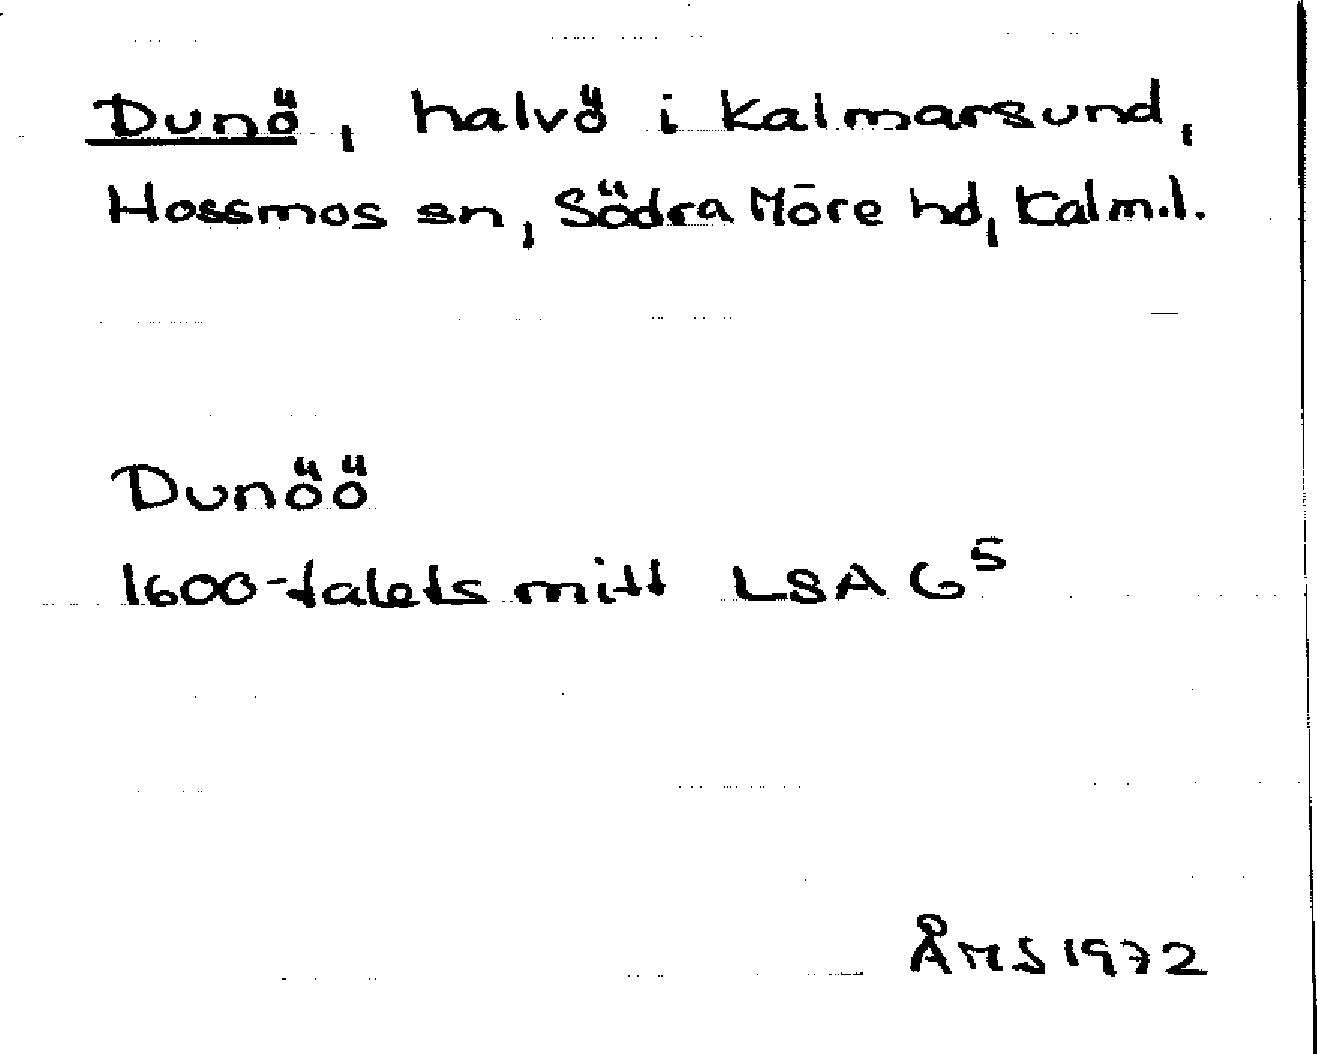 Dunö, halvö i Kalmarsund,
Hossmos sn, Södra Möre hd, Kalm.l.
Dunöö
1600-talets mitt LSA G⁵
ÅMS 1972